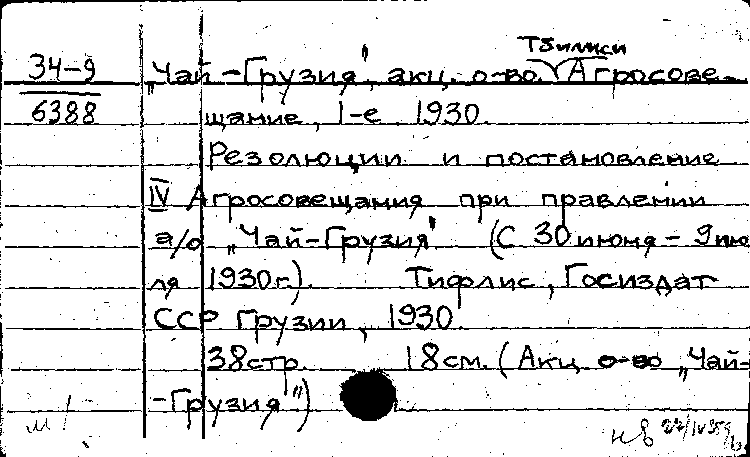 Тбилиси
34-9 „Чай-Грузия", акц. о-во. Агросове-
6388 щание, 1-е 1930.
Резолюции и постановление
IV Агросовещания при правлении
а/о „Чай-Грузия" (С 30 июня - 9 ию
ля 1930 г.). Тифлис, Госиздат
ССР Грузии, 1930.
38 стр. 18 см. (Акц. о-во „Чай-
-Грузия")